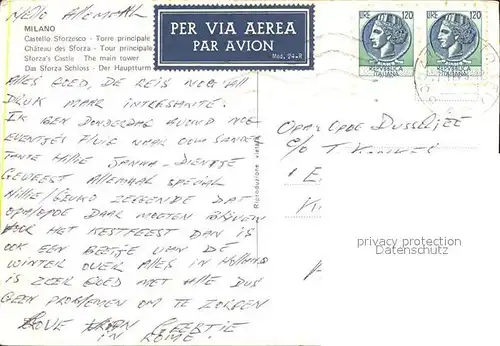 Hello Allemaal
MILANO
Castello Sforzesco - Torre principale
Château des Sforza - Tour principale
Sforza's Castle The main tower
Das Sforza Schloss - Der Hauptturm
PER VIA AEREA
PAR AVION
Mod. 24-R
LIRE 120
REPUBBLICA
ITALIANA
LIRE 120
REPUBBLICA
ITALIANA
ALLES GOED, DE REIS NOGAL
DRUK MAAR INTERESSANTE.
IK BEN DONDERDAG AVOND NOG
EVENTJES NAAR OOM SANDER
TANTE
GEWEEST ALLEMAAL SPECIAL
ZEGGENDE DAT
OPA/OPOE DAAR MOETEN BLIJVEN
VOOR HET KERSTFEEST DAN IS
OOK EEN BEETJE VAN DE
WINTER OVER ALLES IN HOLLAND
IS ZEER GOED MET ALLE DUS
GEEN PROBLEMEN OM TE ZORGEN
LOVE VAN GEERTJE
IN ROME.
Riproduzione vietata
OPA OPOE DUSSELJEE
c/o T
privacy protection
VALUES